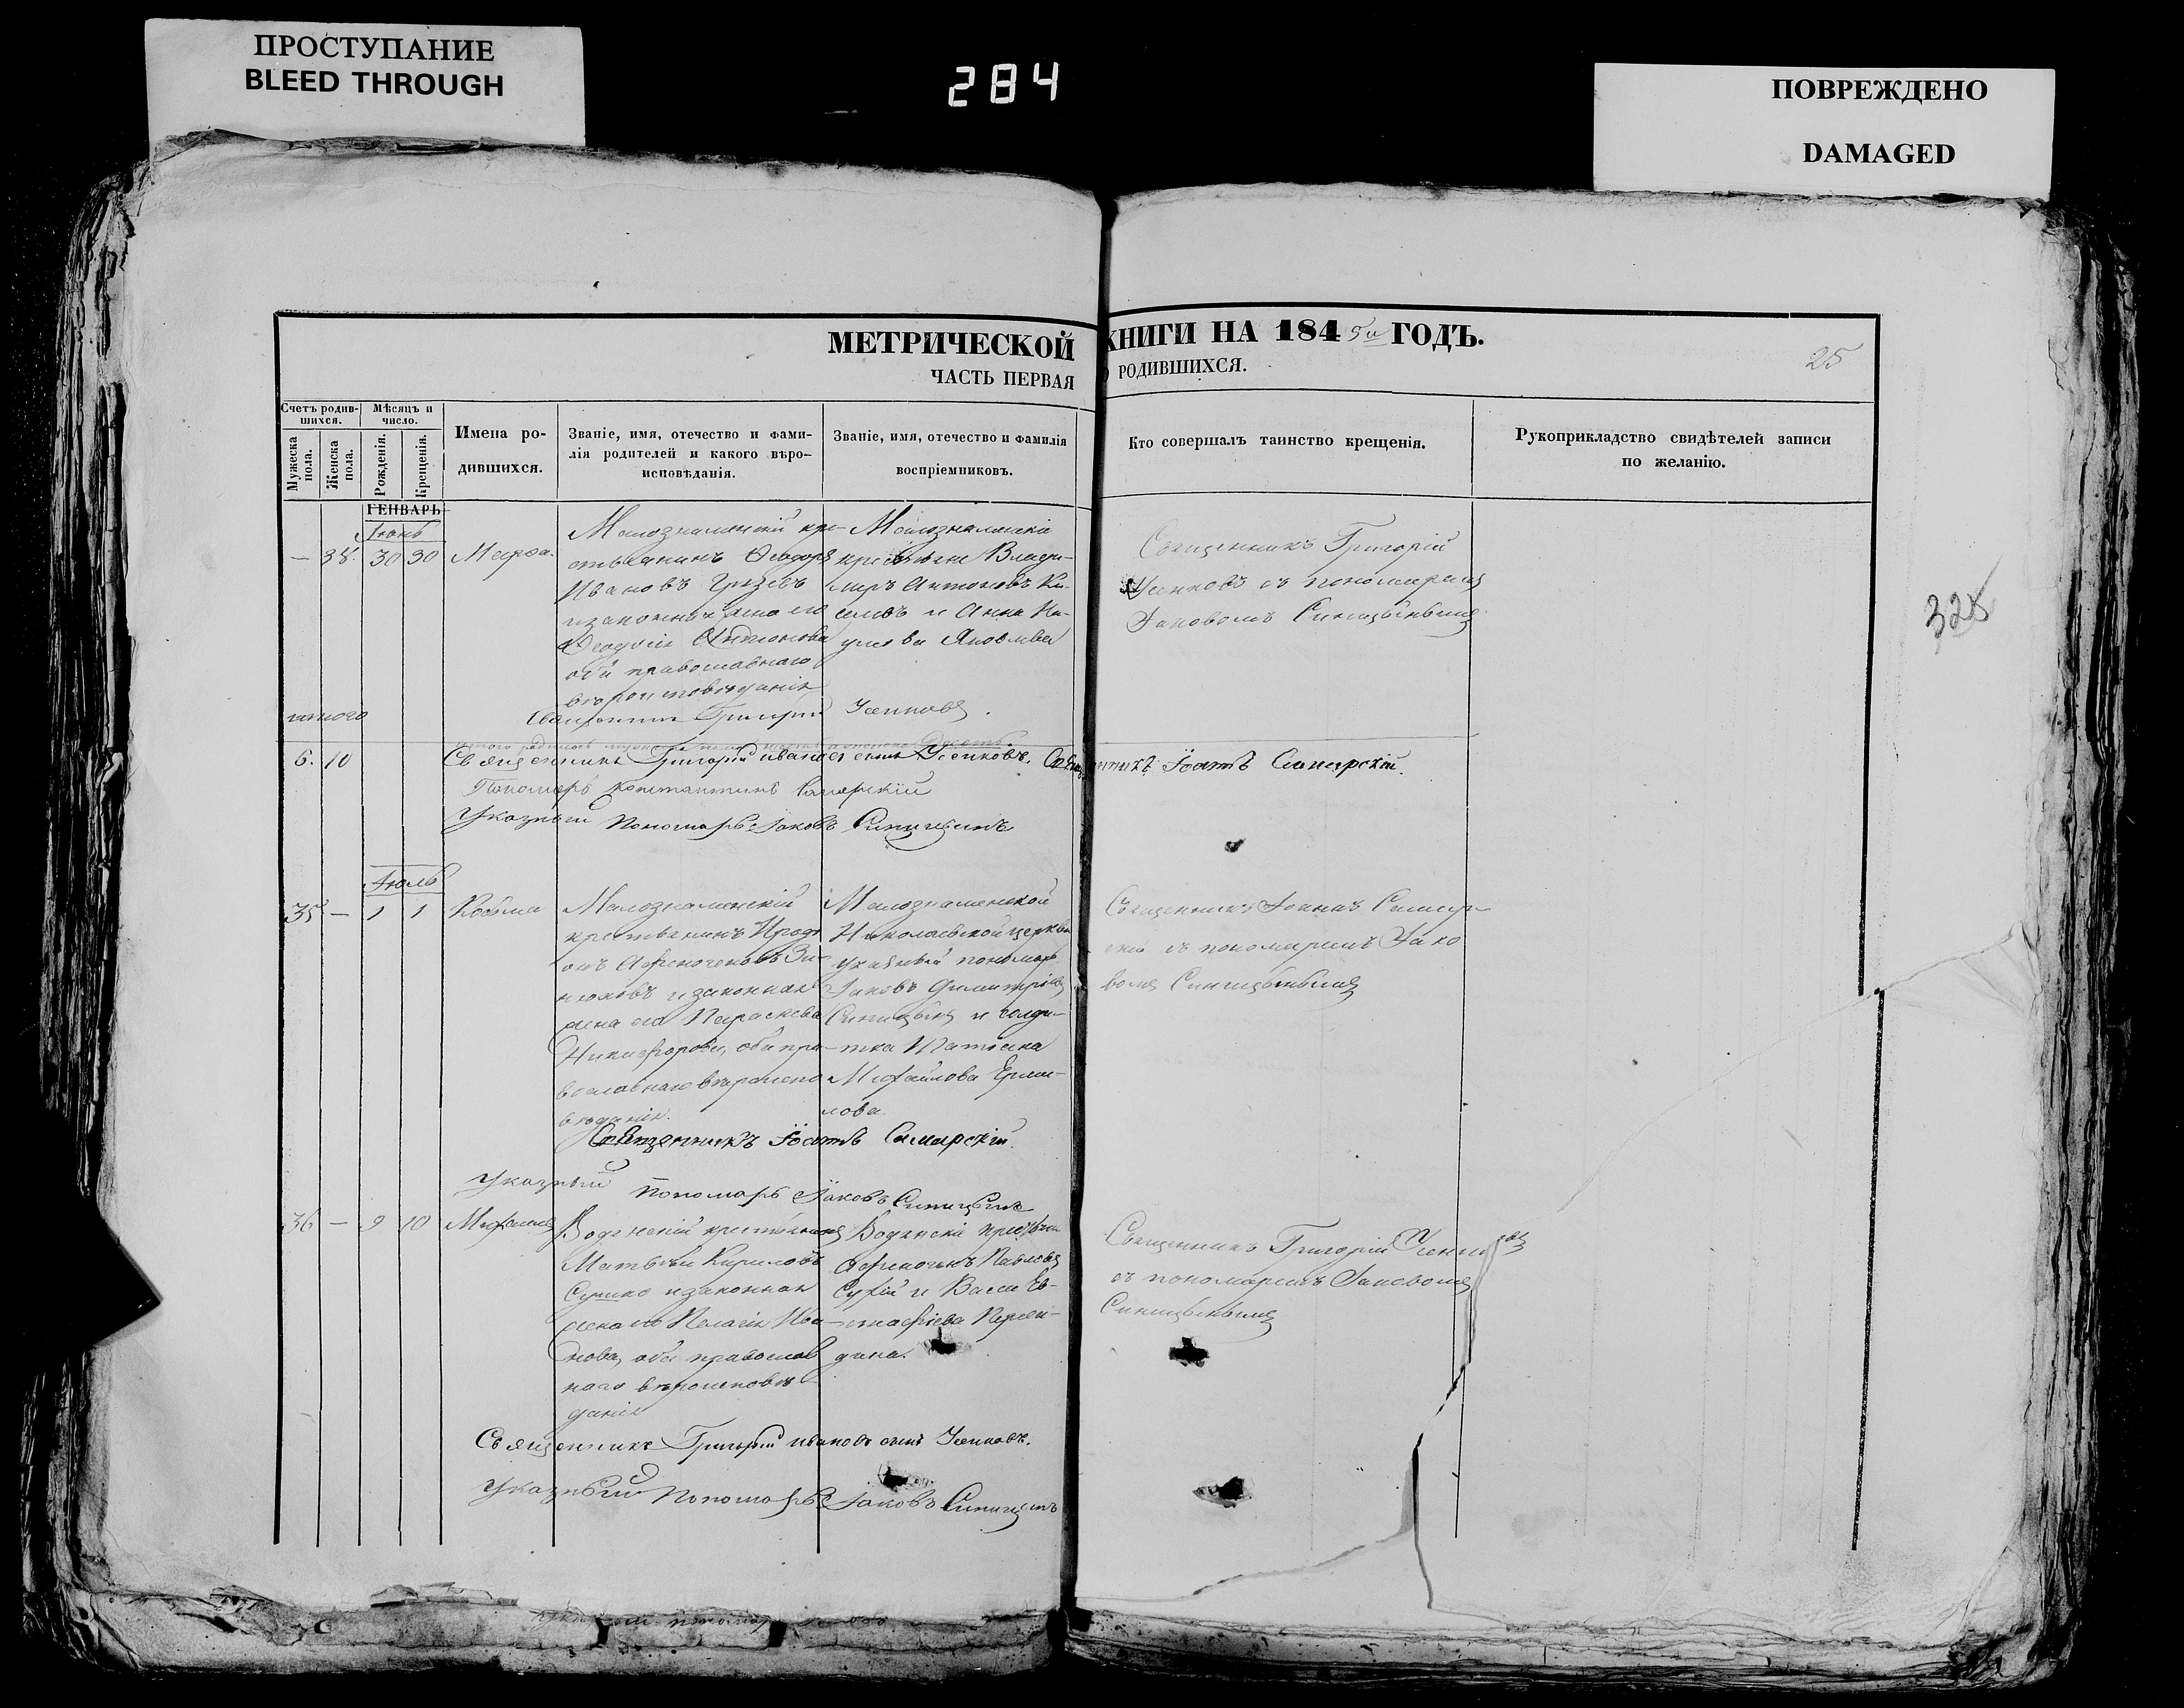 ПРОСТУПАНИЕ
BLEED THROUGH
284
ПОВРЕЖДЕНО
DAMAGED
МЕТРИЧЕСКОЙ КНИГИ НА 1845й ГОДЪ.
ЧАСТЬ ПЕРВАЯ О РОДИВШИХСЯ.
25
Счетъ родив-
шихся.
Мѣсяцъ и
число.
Мужеска
пола.
Женска
пола.
Рожденія.
Крещенія.
Имена ро-
дившихся.
Званіе, имя, отечество и фами-
лія родителей и какого вѣро-
исповѣданія.
Званіе, имя, отечество и фамилія
воспріемниковъ.
Кто совершалъ таинство крещенія.
Рукоприкладство свидѣтелей записи
по желанію.
ГЕНВАРЬ
Іюнь
— 38. 30 30 Марѳа
Малознаменскій кре-
стьянинъ Ѳеодоръ
Ивановъ
и законная жена его
Ѳеодосія Антонова
оба православнаго
вѣроисповѣданія
Малознаменскіе
крестьяне Влади-
миръ Антоновъ Ки-
селевъ и Анна На-
умова Яковлева
Священникъ Григорій
Усенковъ съ пономаремъ
Іаковомъ Синицынымъ
328
Священникъ Григорій Усенковъ.
итого
6. 10
Священникъ Григорій Ивановъ сынъ Усенковъ. Священникъ Іоаннъ Самарскій.
Пономарь Константинъ Самарскій
Указный Пономарь Іаковъ Синицынъ
Іюль
35 — 1 1 Косьма
Малознаменскій
крестьянинъ Иродi-
онъ Аѳиногеновъ Зи-
нюковъ и законная
жена его Параскева
Никифорова, оба пра-
вославнаго вѣроиспо-
вѣданія.
Малознаменской
Николаевской церкви
указный пономарь
Іаковъ Димитріевъ
Синицынъ и солда-
тка Татіана
Михайлова Ермо-
лова
Священникъ Іоаннъ Самар-
скій съ пономаремъ Іако
вомъ Синицынымъ
Священникъ Іоаннъ Самарскій.
Указный Пономарь Іаковъ Синицынъ
36 — 9 10 Михаилъ
Водянскій крестьянинъ
Матвѣй Кириловъ
и законная
жена его Пелагія Ива-
нова, оба православ
наго вѣроисповѣ-
данія
Водянскіе крестьяне
Аѳиногенъ Павловъ
Сухій и Васса Ев-
стафіева
Священникъ Григорій Усенковъ
съ пономаремъ Іаковомъ
Синицынымъ
Священникъ Григорій Ивановъ сынъ Усенковъ.
Указный Пономарь Іаковъ Синицынъ